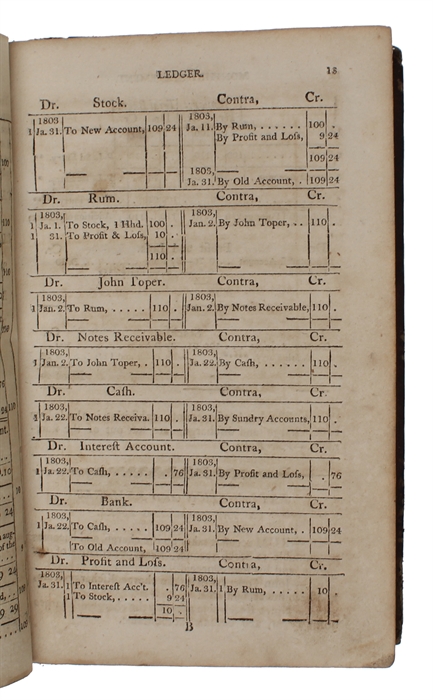 LEDGER. 18
Dr. Stock. Contra, Cr.
1803 1803,
1 Ja. 31. To New Account, 109 24 Ja. 11. By Rum, . . . . . . 100 .
By Profit and Loſs, 9 24
109 24
1803,
Ja. 31. By Old Account, . 109 24
Dr. Rum. Contra, Cr.
1803, 1803,
1 Ja. 1. To Stock, 1 Hhd. 100 . Jan. 2. By John Toper, . . 110 .
1 31. To Profit & Loſs, 10 .
110 .
Dr. John Toper. Contra, Cr.
1803, 1803,
1 Jan. 2. To Rum, . . . . . 110 . Jan. 2. By Notes Receivable, 110 .
Dr. Notes Receivable. Contra, Cr.
1803, 1803,
1 Jan. 2. To John Toper, . 110 . Ja. 22. By Caſh, . . . . . . 110 .
Dr. Caſh. Contra, Cr.
1803, 1803,
1 Ja. 22. To Notes Receiva. 110 . Ja. 31. By Sundry Accounts, 110 .
Dr. Intereſt Account. Contra, Cr.
1803, 1803,
1 Ja. 22. To Caſh, . . . . . . 76 Ja. 31. By Profit and Loſs, . 76
Dr. Bank. Contra, Cr.
1803, 1803,
1 Ja. 22. To Caſh, . . . . . 109 24 Ja. 31. By New Account, . 109 24
To Old Account, 109 24
Dr. Profit and Loſs. Contra, Cr.
1803, 1803,
Ja. 31. 1 To Intereſt Acc't. . 76 Ja. 31. 1 By Rum, . . . . . 10 .
1 To Stock, . . . . . 9 24
10 .
B